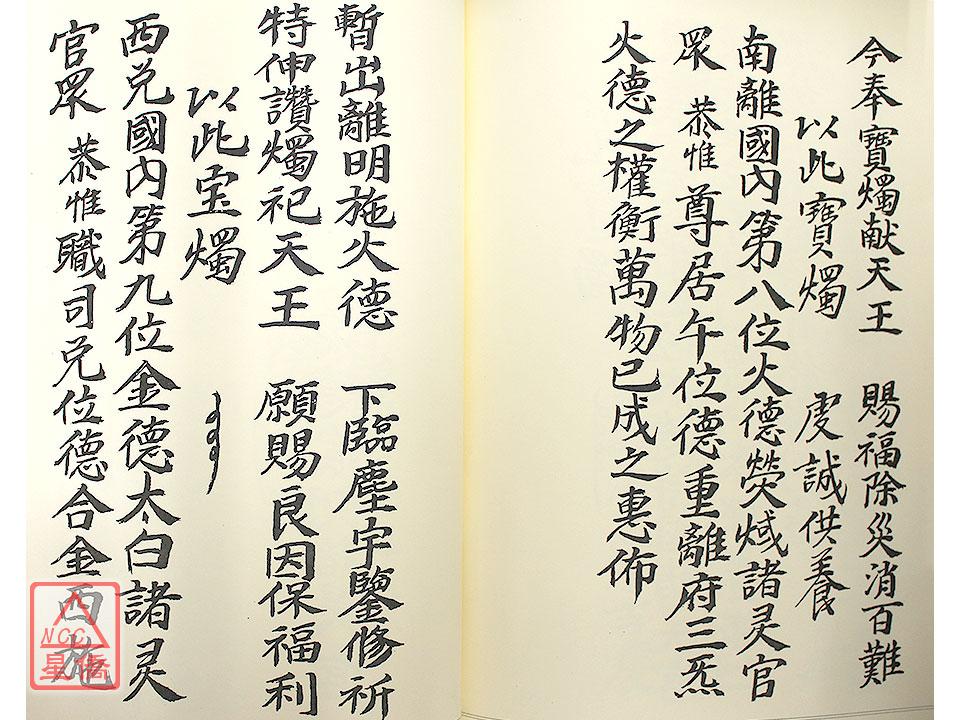 今奉寳燭献天王　賜福除災消百難
以此寳燭　虔誠供養
南離國內第八位火德熒惑諸灵官
眾　恭惟尊居午位德重離府三炁
火德之權衡萬物已成之惠佈
暫出離明施火德　下臨塵宇鑒修祈
特伸讚燭祀天王　願賜良因保福利
以此宝燭
西兑國內第九位金德太白諸灵
官眾　恭惟職司兑位德合金西施
NCC
星僑